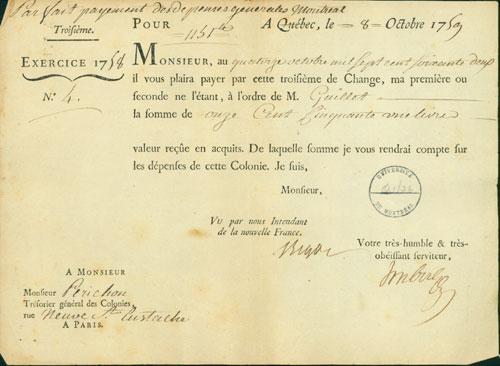 Parfait payement des depenses generales Montreal
Troisième. POUR 1151 lt A Québec, le 8 Octobre 1759
EXERCICE 1758
N.º 4.
MONSIEUR, au quatorze octobre mil sept cent soixante deux
il vous plaira payer par cette troisième de Change, ma première ou
seconde ne l'étant, à l'ordre de M. Guillot
la somme de onze Cent Cinquante une livre
valeur reçûe en acquits. De laquelle somme je vous rendrai compte sur
les dépenses de cette Colonie. Je suis,
Monsieur,
UNIVERSITÉ
DE MONTRÉAL
Vu par nous Intendant
de la nouvelle France.
Bigot
Votre très-humble & très-
obéissant serviteur,
Imbert
A MONSIEUR
Monsieur Perichon
Trésorier général des Colonies,
rue Neuve St. Eustache
A PARIS.